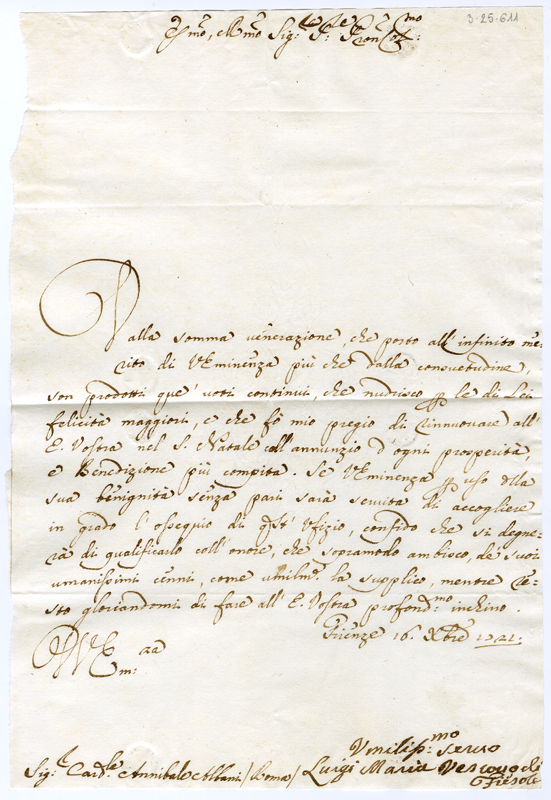 3-25-611
Em̃o, e Rm̃o Sig.re P.re Pron Col.mo
Dalla somma venerazione, che porto all'infinito me-
rito di V Eminenza più che dalla consuetudine,
son prodotti que' voti continui, che nudrisco p le di Lei
felicità maggiori, e che fò mio pregio di rinnuovare all'
E. Vostra nel S. Natale coll'annunzio d'ogni prosperità,
e Benedizione più compita. Se V Eminenza p uso dlla
sua benignità senza pari sarà servita di accogliere
in grado l'ossequio di qst' Ufizio, confido che si degne-
rà di qualificarlo coll'onore, che sopramodo ambisco, de' suoi
umanissimi cenni, come umilm.te la supplico, mentre re-
sto gloriandomi di fare all'E. Vostra profond.mo inchino.
Firenze 16. Xbre 1721.
D V E
m:aa
Umiliss.mo servo
Sig.r Card.le Annibale Albani /Roma/ Luigi Maria Vescovo di
Fiesole